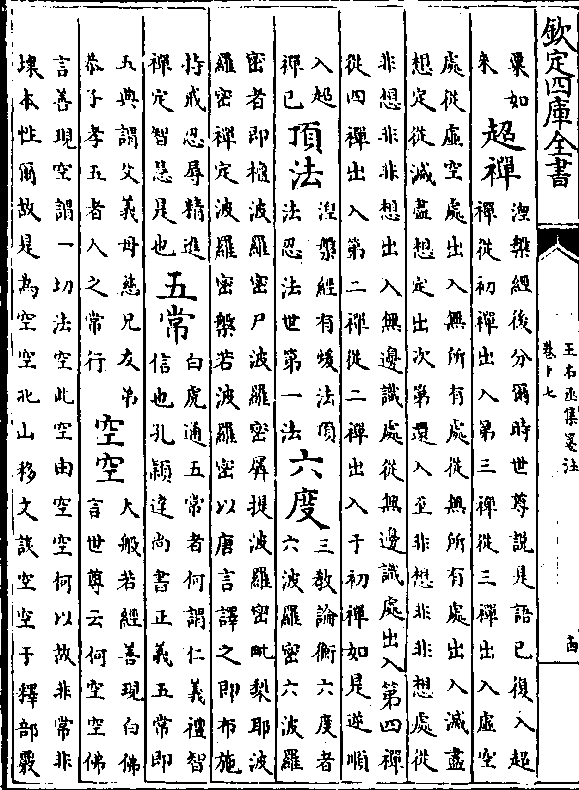 欽定四庫全書
王右丞集箋注
卷十七
十四
粟如
來
超禪
湼槃經後分爾時世尊說是語已復入超
禪從初禪出入第三禪從三禪出入虛空
處從虛空處出入無所有處從無所有處出入滅盡
想定從滅盡想定出次第還入至非想非非想處從
非想非非想出入無邊識處從無邊識處出入第四禪
從四禪出入第二禪從二禪出入于初禪如是逆順
入超
禪已
頂法
湼槃經有煖法頂
法忍法世第一法
六度
三教論衡六度者
六波羅密六波羅
密者即檀波羅密尸波羅密羼提波羅密毗梨耶波
羅密禪定波羅密槃若波羅密以唐言譯之即布施
持戒忍辱精進
禪定智慧是也
五常
白虎通五常者何謂仁義禮智
信也孔穎達尚書正義五常即
五典謂父義母慈兄友弟
恭子孝五者人之常行
空空
大般若經善現白佛
言世尊云何空空佛
言善現空謂一切法空此空由空空何以故非常非
壞本性爾故是為空空北山移文談空空于釋部覈